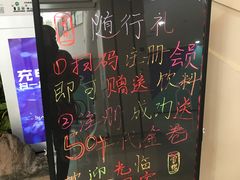 随行礼
①扫码注册会员
即可赠送饮料
②注册成功送
50元代金卷
欢迎光临
充电
扫一